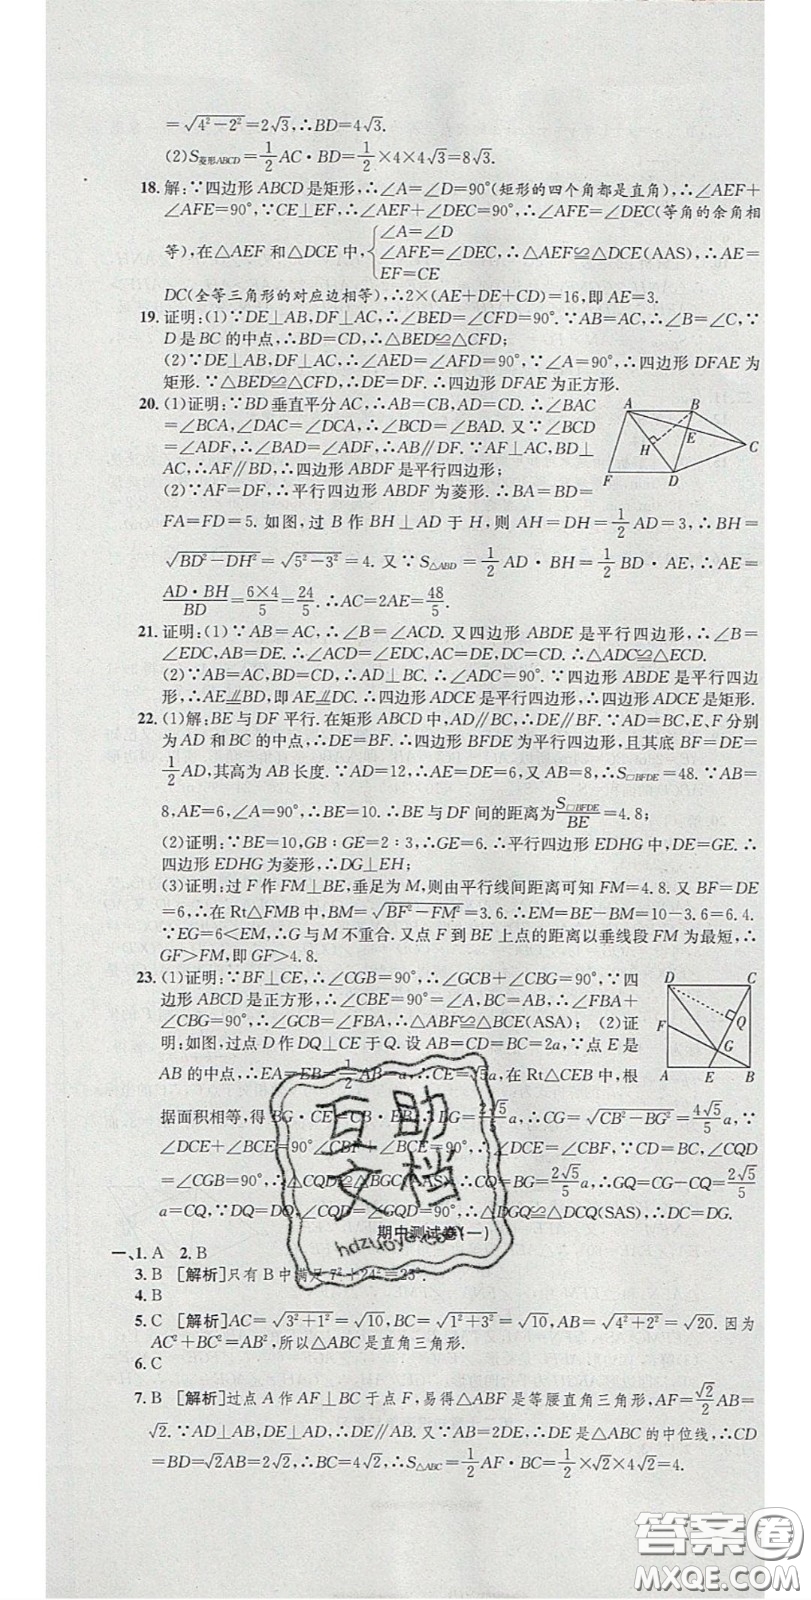 =√(4²−2²)=2√3,∴BD=4√3.
(2)S菱形ABCD=1/2 AC·BD=1/2×4×4√3=8√3.
18.解:∵四边形ABCD是矩形,∴∠A=∠D=90°(矩形的四个角都是直角),∴∠AEF+
∠AFE=90°,∵CE⊥EF,∴∠AEF+∠DEC=90°,∴∠AFE=∠DEC(等角的余角相
等),在△AEF和△DCE中,{∠A=∠D ∠AFE=∠DEC,∴△AEF≌△DCE(AAS),∴AE= EF=CE
DC(全等三角形的对应边相等),∴2×(AE+DE+CD)=16,即AE=3.
19.证明:(1)∵DE⊥AB,DF⊥AC,∴∠BED=∠CFD=90°.∵AB=AC,∴∠B=∠C,∵
D是BC的中点,∴BD=CD,∴△BED≌△CFD;
(2)∵DE⊥AB,DF⊥AC,∴∠AED=∠AFD=90°,∵∠A=90°,∴四边形DFAE为
矩形.∵△BED≌△CFD,∴DE=DF.∴四边形DFAE为正方形.
20.(1)证明:∵BD垂直平分AC,∴AB=CB,AD=CD.∴∠BAC
=∠BCA,∠DAC=∠DCA,∴∠BCD=∠BAD.又∵∠BCD
=∠ADF,∴∠BAD=∠ADF,∴AB∥DF.∵AF⊥AC,BD⊥
AC,∴AF∥BD,∴四边形ABDF是平行四边形;
(2)∵AF=DF,∴平行四边形ABDF为菱形.∴BA=BD=
FA=FD=5.如图,过B作BH⊥AD于H,则AH=DH=1/2 AD=3,∴BH=
√(BD²−DH²)=√(5²−3²)=4.又∵S△ABD=1/2 AD·BH=1/2 BD·AE,∴AE=
AD·BH/BD=6×4/5=24/5.∴AC=2AE=48/5.
A B E H C F D
21.证明:(1)∵AB=AC,∴∠B=∠ACD.又四边形ABDE是平行四边形,∴∠B=
∠EDC,AB=DE.∴∠ACD=∠EDC,AC=DE,DC=CD.∴△ADC≌△ECD.
(2)∵AB=AC,BD=CD,∴AD⊥BC.∴∠ADC=90°.∵四边形ABDE是平行四边
形,∴AE∥=BD,即AE∥=DC.∴四边形ADCE是平行四边形.∴四边形ADCE是矩形.
22.(1)解:BE与DF平行.在矩形ABCD中,AD∥BC,∴DE∥BF.∵AD=BC,E、F分别
为AD和BC的中点,∴DE=BF.∴四边形BFDE为平行四边形,且其底BF=DE=
1/2 AD,其高为AB长度.∵AD=12,∴AE=DE=6,又AB=8,∴S▱BFDE=48.∵AB=
8,AE=6,∠A=90°,∴BE=10.∴BE与DF间的距离为S▱BFDE/BE=4.8;
(2)证明:∵BE=10,GB∶GE=2∶3,∴GE=6.∴平行四边形EDHG中,DE=GE.∴
四边形EDHG为菱形,∴DG⊥EH;
(3)证明:过F作FM⊥BE,垂足为M,则由平行线间距离可知FM=4.8.又BF=DE
=6,∴在Rt△FMB中,BM=√(BF²−FM²)=3.6.∴EM=BE−BM=10−3.6=6.4.
∵EG=6<EM,∴G与M不重合.又点F到BE上点的距离以垂线段FM为最短,∴
GF>FM,即GF>4.8.
23.(1)证明:∵BF⊥CE,∴∠CGB=90°,∴∠GCB+∠CBG=90°,∵四
边形ABCD是正方形,∴∠CBE=90°=∠A,BC=AB,∴∠FBA+
∠CBG=90°,∴∠GCB=∠FBA,∴△ABF≌△BCE(ASA);(2)证
明:如图,过点D作DQ⊥CE于Q.设AB=CD=BC=2a,∵点E是
AB的中点,∴EA=EB=1/2 AB=a,∴CE=√5a,在Rt△CEB中,根
据面积相等,得BG·CE=CB·EB,∴BG=2√5/5 a,∴CG=√(CB²−BG²)=4√5/5 a,∵
∠DCE+∠BCE=90°,∠CBF+∠BCE=90°,∴∠DCE=∠CBF,∵CD=BC,∠CQD
=∠CGB=90°,∴△CQD≌△BGC(ASA),∴CQ=BG=2√5/5 a,∴GQ=CG−CQ=2√5/5
a=CQ,∵DQ=DQ,∠CQD=∠GQD=90°,∴△DGQ≌△DCQ(SAS),∴DC=DG.
D C Q F G A E B
期中测试卷(一)
一、1.A 2.B
3.B [解析]只有B中满足7²+24²=25².
4.B
5.C [解析]AC=√(3²+1²)=√10,BC=√(1²+3²)=√10,AB=√(4²+2²)=√20.因为
AC²+BC²=AB²,所以△ABC是直角三角形.
6.C
7.B [解析]过点A作AF⊥BC于点F,易得△ABF是等腰直角三角形,AF=√2/2 AB=
√2.∵AD⊥AB,DE=AD,∴DE∥AB.又∵AB=2DE,∴DE是△ABC的中位线,∴CD
=BD=√2AB=2√2,∴BC=4√2,∴S△ABC=1/2 AF·BC=1/2×√2×4√2=4.
互助
文档
hdzuoye.com
答案圈
MXQE.COM